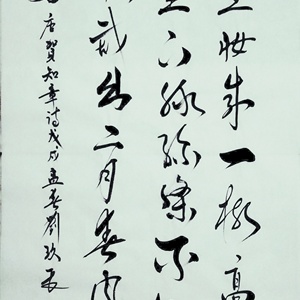 妝成一樹高
下綠絲絛不
裁出二月春風
唐賀知章詩戊戌孟春劉玖